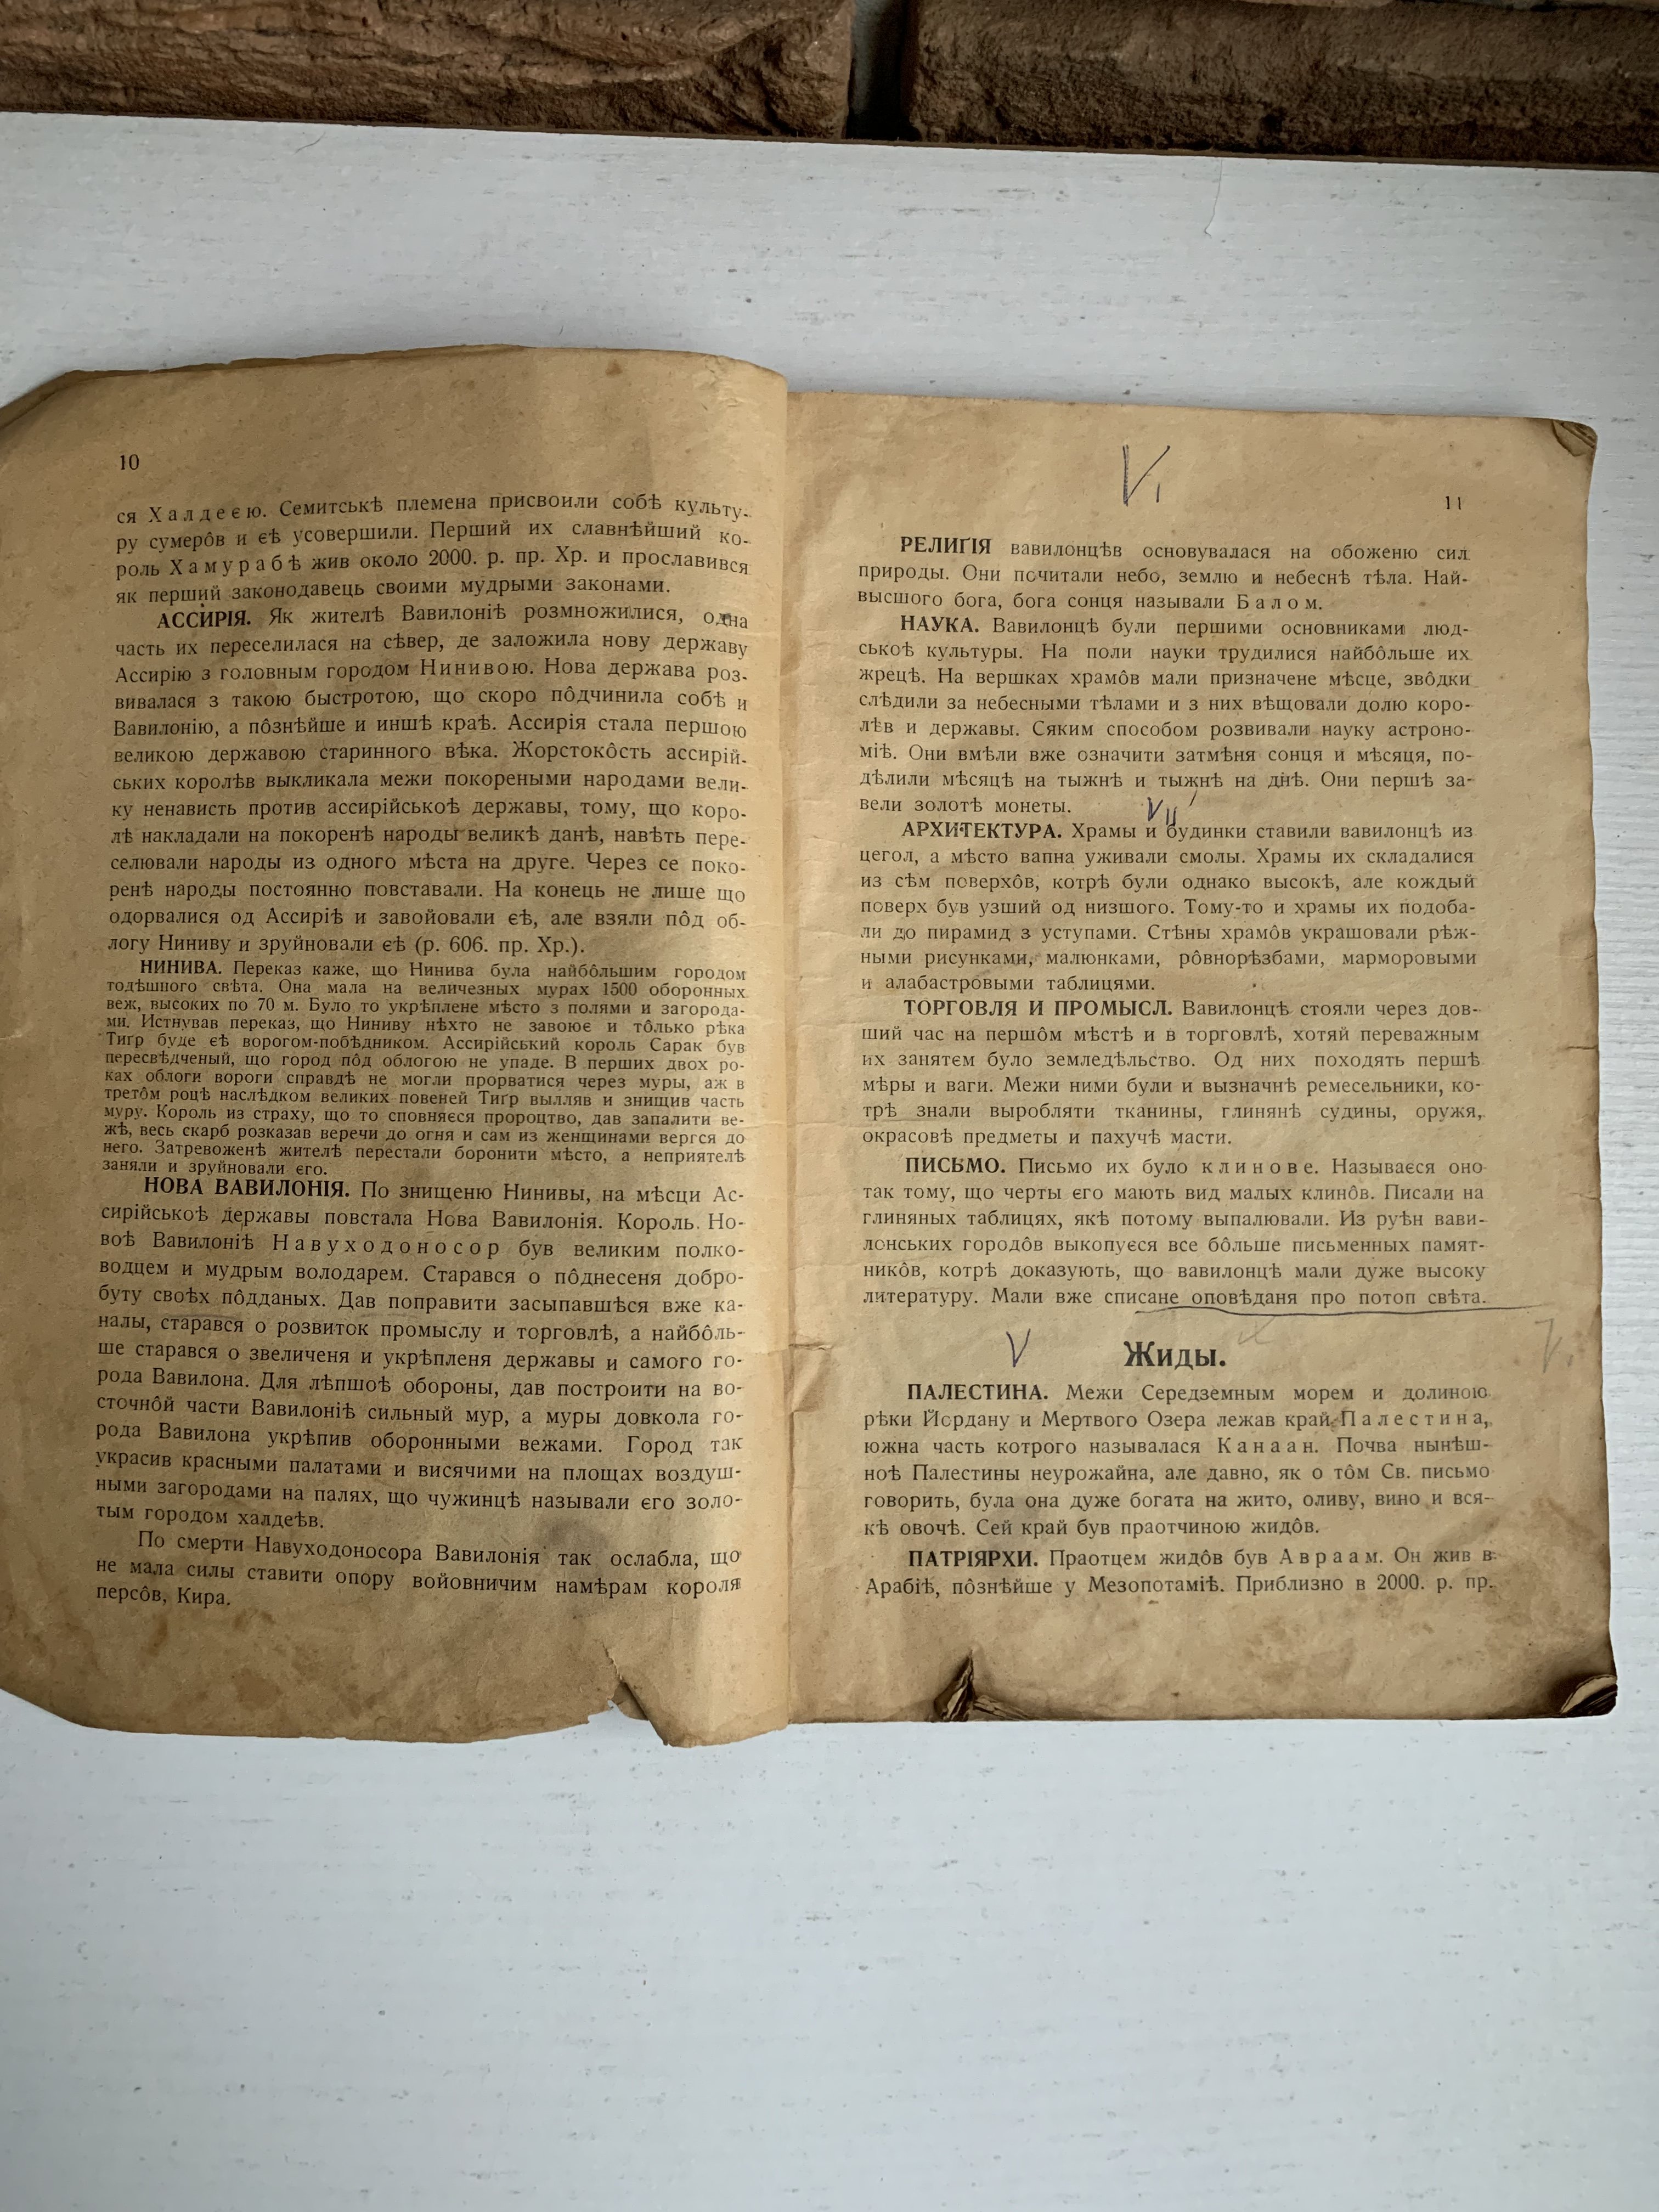 10
ся Халдеєю. Семитськѣ племена присвоили собѣ культу-
ру сумерôв и єѣ усовершили. Перший их славнѣйший ко-
роль Хамурабѣ жив около 2000. р. пр. Хр. и прославився
як перший законодавець своими мудрыми законами.
АССИРІЯ. Як жителѣ Вавилоніѣ розмножилися, одна
часть их переселилася на сѣвер, де заложила нову державу
Ассирію з головным городом Нинивою. Нова держава роз-
вивалася з такою быстротою, що скоро пôдчинила собѣ и
Вавилонію, а пôзнѣйше и иншѣ краѣ. Ассирія стала першою
великою державою старинного вѣка. Жорстокôсть ассирій-
ських королѣв выкликала межи покореными народами вели-
ку ненависть против ассирійськоѣ державы, тому, що коро-
лѣ накладали на покоренѣ народы великѣ данѣ, навѣть пере-
селювали народы из одного мѣста на друге. Через се поко-
ренѣ народы постоянно повставали. На конець не лише що
одорвалися од Ассиріѣ и завойовали єѣ, але взяли пôд об-
логу Ниниву и зруйновали єѣ (р. 606. пр. Хр.).
НИНИВА. Переказ каже, що Нинива була найбôльшим городом
тодѣшного свѣта. Она мала на величезных мурах 1500 оборонных
веж, высоких по 70 м. Було то укрѣплене мѣсто з полями и загорода-
ми. Истнував переказ, що Ниниву нѣхто не завоює и тôлько рѣка
Тиґр буде єѣ ворогом-побѣдником. Ассирійський король Сарак був
пересвѣдченый, що город пôд облогою не упаде. В перших двох ро-
ках облоги вороги справдѣ не могли прорватися через муры, аж в
третôм роцѣ наслѣдком великих повеней Тиґр выляв и знищив часть
муру. Король из страху, що то сповняєся пророцтво, дав запалити ве-
жѣ, весь скарб розказав веречи до огня и сам из женщинами вергся до
него. Затревоженѣ жителѣ перестали боронити мѣсто, а неприятелѣ
заняли и зруйновали єго.
НОВА ВАВИЛОНІЯ. По знищеню Нинивы, на мѣсци Ас-
сирійськоѣ державы повстала Нова Вавилонія. Король Но-
воѣ Вавилоніѣ Навуходоносор був великим полко-
водцем и мудрым володарем. Старався о пôднесеня добро-
буту своѣх пôдданых. Дав поправити засыпавшѣся вже ка-
налы, старався о розвиток промыслу и торговлѣ, а найбôль-
ше старався о звеличеня и укрѣпленя державы и самого го-
рода Вавилона. Для лѣпшоѣ обороны, дав построити на во-
сточнôй части Вавилоніѣ сильный мур, а муры довкола го-
рода Вавилона укрѣпив оборонными вежами. Город так
украсив красными палатами и висячими на площах воздуш-
ными загородами на палях, що чужинцѣ называли єго золо-
тым городом халдеѣв.
По смерти Навуходоносора Вавилонія так ослабла, що
не мала силы ставити опору войовничим намѣрам короля
персôв, Кира.
VI
11
РЕЛИҐІЯ вавилонцѣв основувалася на обоженю сил
природы. Они почитали небо, землю и небеснѣ тѣла. Най-
высшого бога, бога сонця называли Балом.
НАУКА. Вавилонцѣ були першими основниками люд-
ськоѣ культуры. На поли науки трудилися найбôльше их
жрецѣ. На вершках храмôв мали призначене мѣсце, звôдки
слѣдили за небесными тѣлами и з них вѣщовали долю коро-
лѣв и державы. Сяким способом розвивали науку астроно-
міѣ. Они вмѣли вже означити затмѣня сонця и мѣсяця, по-
дѣлили мѣсяцѣ на тыжнѣ и тыжнѣ на днѣ. Они першѣ за-
вели золотѣ монеты.
VII
АРХИТЕКТУРА. Храмы и будинки ставили вавилонцѣ из
цегол, а мѣсто вапна уживали смолы. Храмы их складалися
из сѣм поверхôв, котрѣ були однако высокѣ, але кождый
поверх був узший од низшого. Тому-то и храмы их подоба-
ли до пирамид з уступами. Стѣны храмôв украшовали рѣж-
ными рисунками, малюнками, рôвнорѣзбами, марморовыми
и алабастровыми таблицями.
ТОРГОВЛЯ И ПРОМЫСЛ. Вавилонцѣ стояли через дов-
ший час на першôм мѣстѣ и в торговлѣ, хотяй переважным
их занятєм було земледѣльство. Од них походять першѣ
мѣры и ваги. Межи ними були и вызначнѣ ремесельники, ко-
трѣ знали выробляти тканины, глинянѣ судины, оружя,
окрасовѣ предметы и пахучѣ масти.
ПИСЬМО. Письмо их було клинове. Называєся оно
так тому, що черты єго мають вид малых клинôв. Писали на
глиняных таблицях, якѣ потому выпалювали. Из руѣн вави-
лонських городôв выкопуєся все бôльше письменных памят-
никôв, котрѣ доказують, що вавилонцѣ мали дуже высоку
литературу. Мали вже списане оповѣданя про потоп свѣта.
V
Жиды.
ПАЛЕСТИНА. Межи Середземным морем и долиною
рѣки Йордану и Мертвого Озера лежав край Палестина,
южна часть котрого называлася Канаан. Почва нынѣш-
ноѣ Палестины неурожайна, але давно, як о тôм Св. письмо
говорить, була она дуже богата на жито, оливу, вино и вся-
кѣ овочѣ. Сей край був праотчиною жидôв.
ПАТРІЯРХИ. Праотцем жидôв був Авраам. Он жив в
Арабіѣ, пôзнѣйше у Мезопотаміѣ. Приблизно в 2000. р. пр.